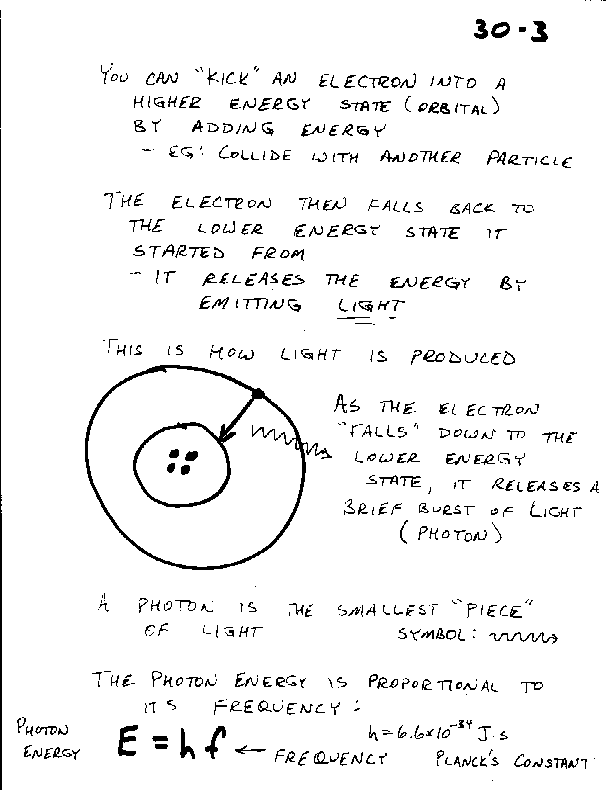 30-3
YOU CAN "KICK" AN ELECTRON INTO A
HIGHER ENERGY STATE (ORBITAL)
BY ADDING ENERGY
- EG: COLLIDE WITH ANOTHER PARTICLE
THE ELECTRON THEN FALLS BACK TO
THE LOWER ENERGY STATE IT
STARTED FROM
- IT RELEASES THE ENERGY BY
EMITTING LIGHT
THIS IS HOW LIGHT IS PRODUCED
AS THE ELECTRON
"FALLS" DOWN TO THE
LOWER ENERGY
STATE, IT RELEASES A
BRIEF BURST OF LIGHT
(PHOTON)
A PHOTON IS THE SMALLEST "PIECE"
OF LIGHT SYMBOL:
THE PHOTON ENERGY IS PROPORTIONAL TO
ITS FREQUENCY:
PHOTON ENERGY
E = hf ← FREQUENCY
h = 6.6x10⁻³⁴ J·s
PLANCK'S CONSTANT